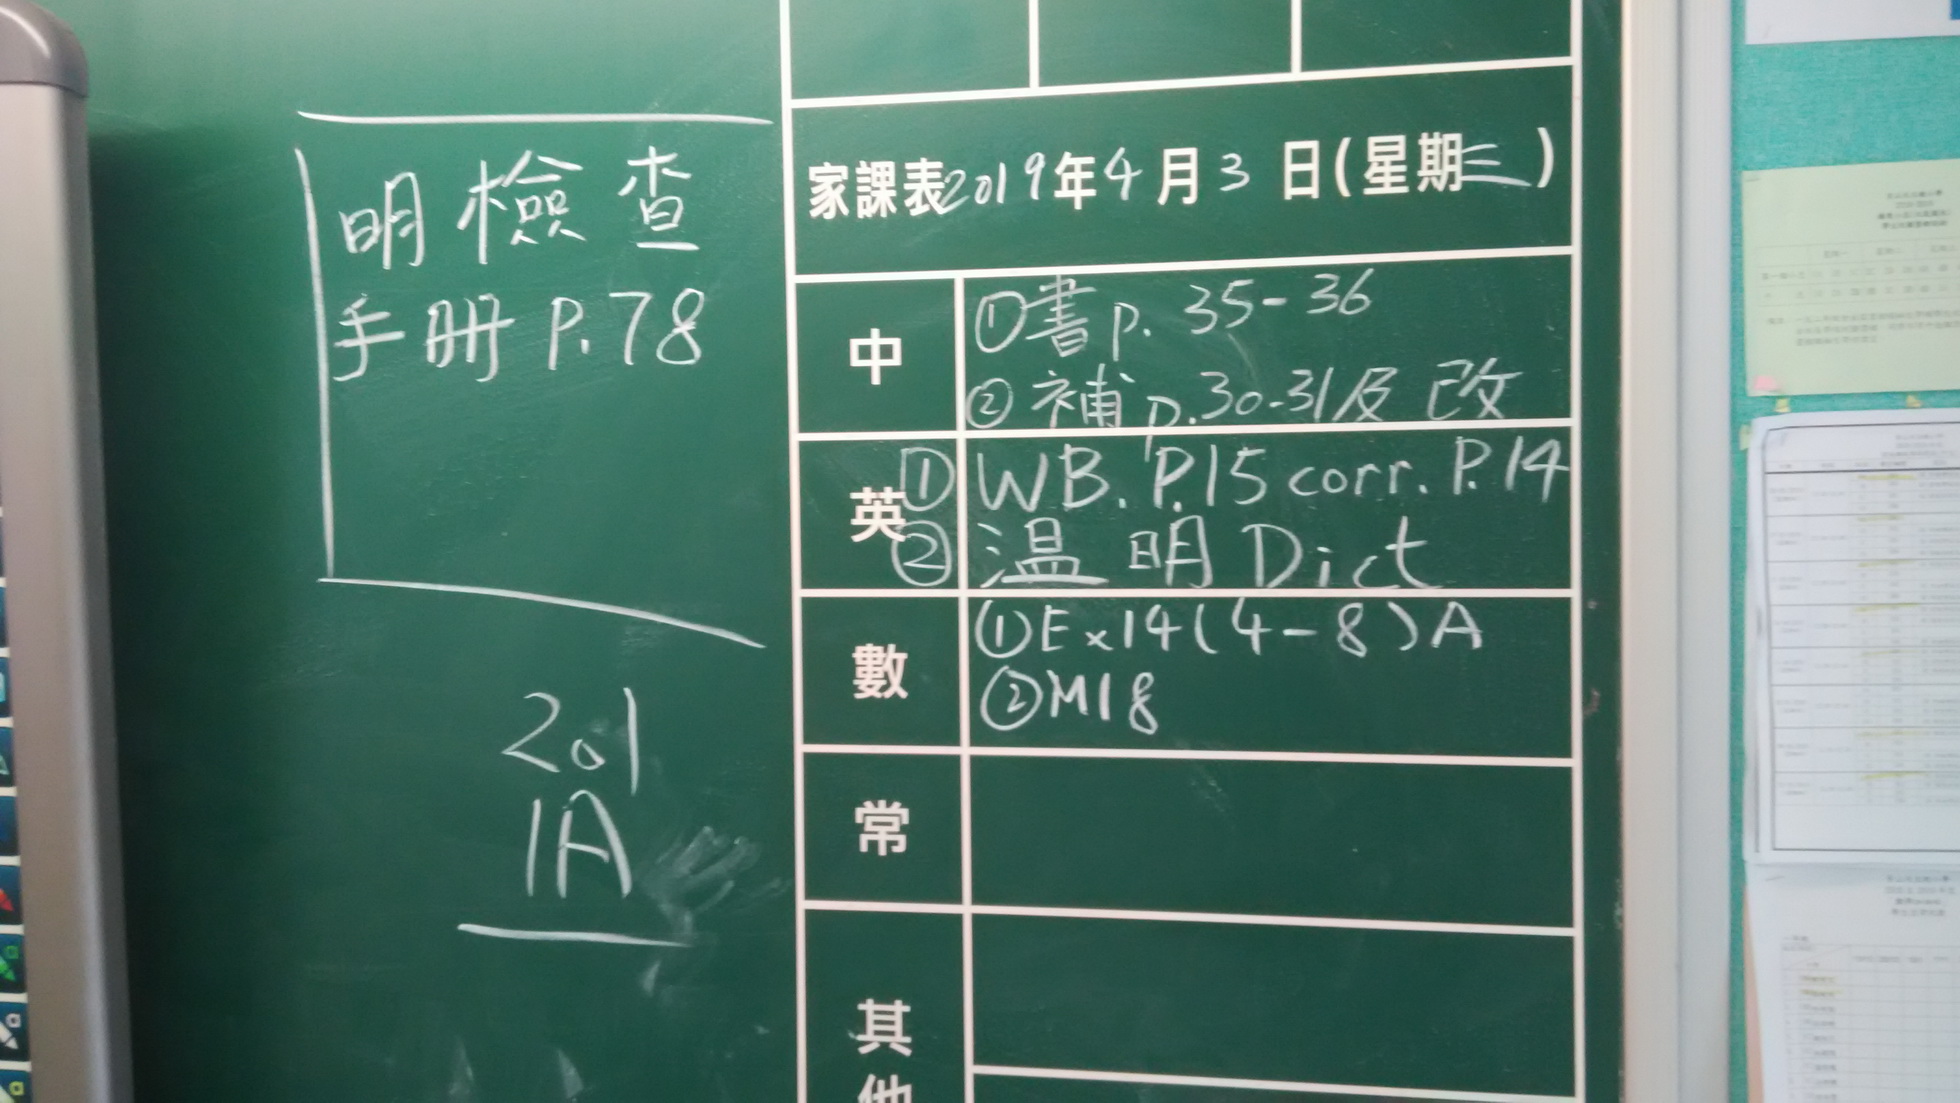 明檢查
手册 P.78
201
1A
家課表2019年4月3日(星期三)
中
①書p. 35-36
②補p.30-31及改
英
①WB. P.15 corr. P.14
②溫明Dict
數
①Ex14(4-8)A
②M18
常
其
他